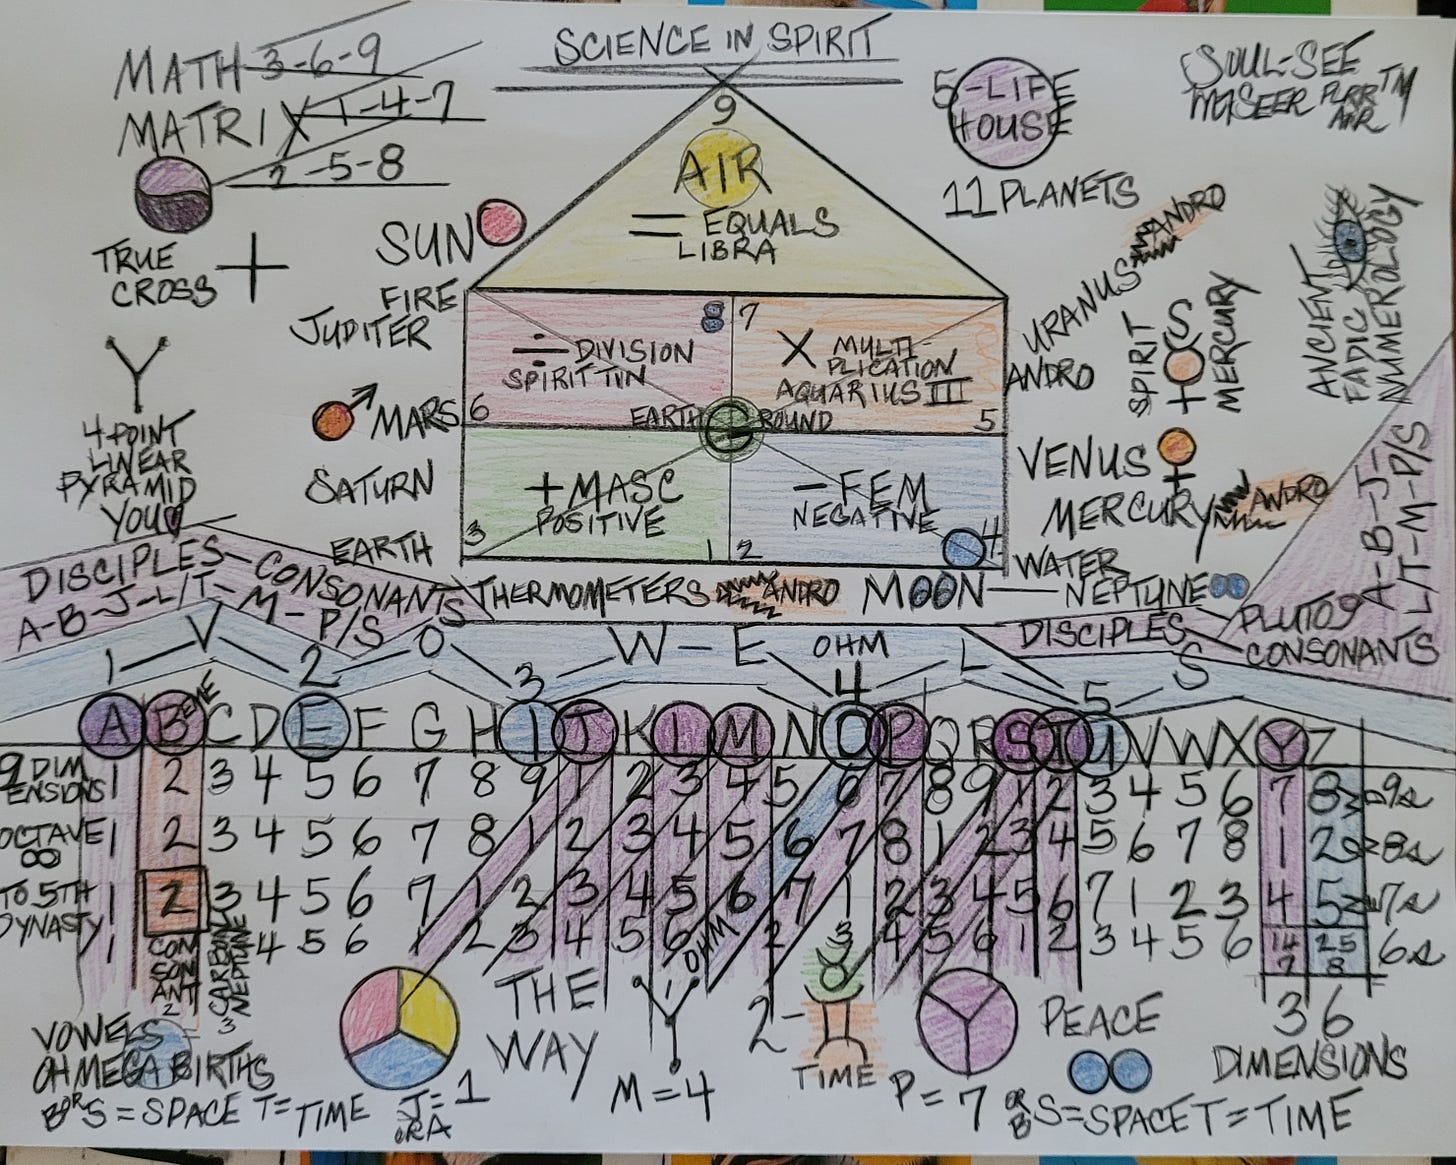 SCIENCE IN SPIRIT
MATH 3-6-9
MATRIX 1-4-7
2-5-8
TRUE
CROSS
4 POINT
LINEAR
PYRAMID
YOU
SUN
FIRE
JUPITER
MARS
SATURN
EARTH
9
AIR
= EQUALS
LIBRA
8
÷ DIVISION
SPIRIT TIN
6
7
X MULTI-
PLICATION
AQUARIUS III
5
EARTH G ROUND
+ MASC
POSITIVE
3
1
- FEM
NEGATIVE
2
4
5-LIFE
HOUSE
11 PLANETS
SOUL-SEE
TM
URANUS ANDRO
ANDRO
SPIRIT
MERCURY
ANCIENT
FADIC
NUMEROLOGY
VENUS
MERCURY ANDRO
WATER
NEPTUNE
PLUTO 9
CONSONANTS
A-B-J-
L/T-M-P/S
THERMOMETERS ANDRO MOON
DISCIPLES - CONSONANTS
A-B-J-L/T-M-P/S
DISCIPLES
1 V 2 O 3 W-E OHM 4 L 5 S
A B C D E F G H I J K L M N O P Q R S T U V W X Y Z
9 DIM
ENSIONS
1 2 3 4 5 6 7 8 9 1 2 3 4 5 6 7 8 9 1 2 3 4 5 6 7 8 9s
OCTAVE
1 2 3 4 5 6 7 8 1 2 3 4 5 6 7 8 1 2 3 4 5 6 7 8 1 2 8s
TO 5TH
DYNASTY
1 2 3 4 5 6 7 1 2 3 4 5 6 7 1 2 3 4 5 6 7 1 2 3 4 5 7s
1 4 5 6 1 2 3 4 5 6 OHM 2 3 4 5 6 1 2 3 4 5 6 14 25 6s
7 8
CON
SON
ANT
2
CARBON
NEPTUNE
3
VOWELS
OHMEGA BIRTHS
B OR S = SPACE T = TIME
J = 1
OR A
THE
WAY
M = 4
2-
TIME
P = 7
PEACE
OR B S = SPACE T = TIME
36
DIMENSIONS